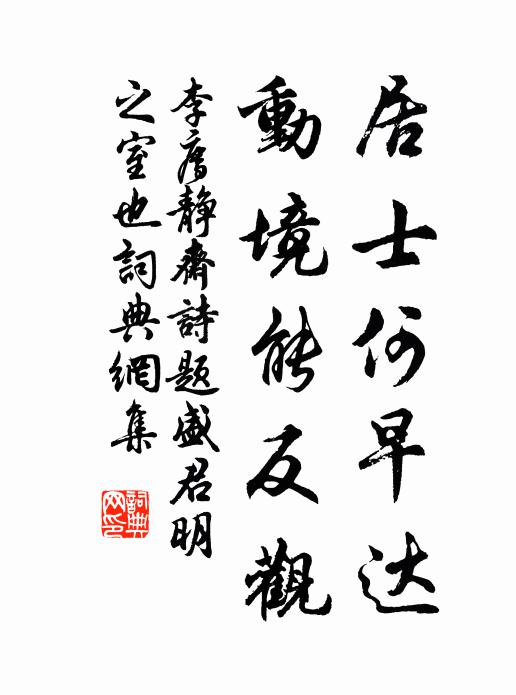 居士何早达
動境能反觀
李廌静齋詩题盛君明
之室也詞典網集
詞典网印